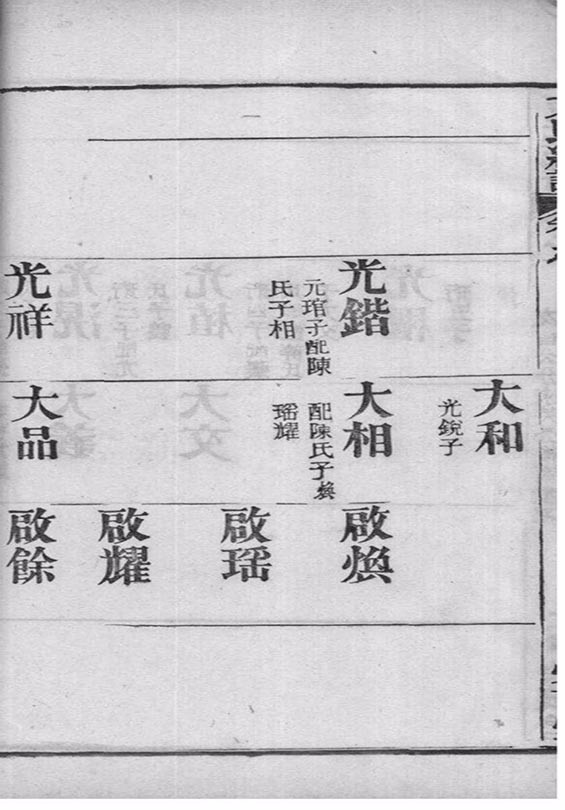 光鍇
元琯子配陳
氏子相
光祥
大和
光銳子
大相
配陳氏子煥
瑶耀
大品
啟煥
啟瑶
啟耀
啟餘